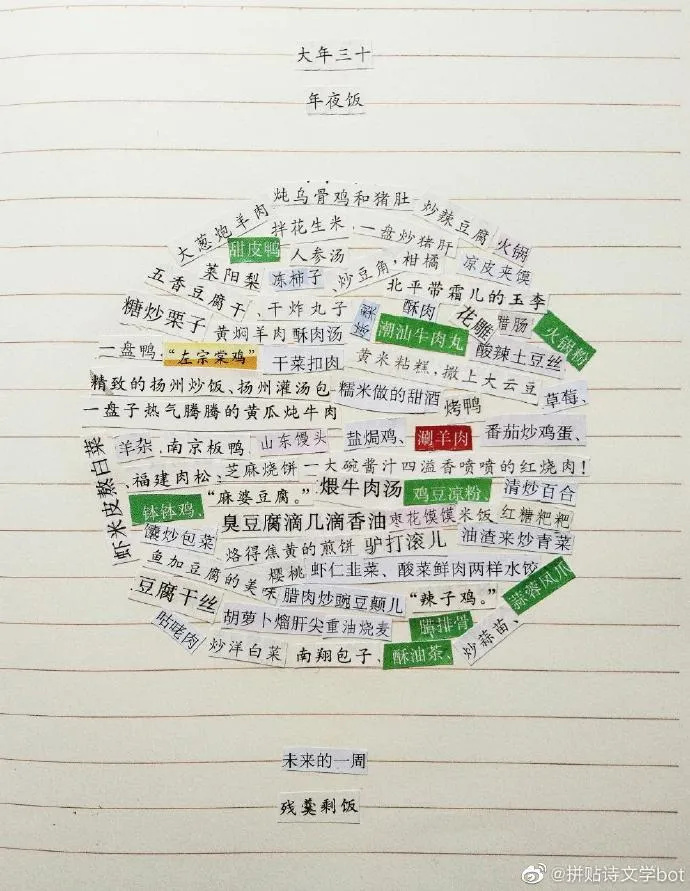 大年三十
年夜饭
炖乌骨鸡和猪肚
大葱炮羊肉 拌花生米、一盘炒猪肝 炒辣豆腐 火锅
甜皮鸭 人参汤 柑橘 凉皮夹馍
莱阳梨 冻柿子、炒豆角, 北平带霜儿的玉李
五香豆腐干、干炸丸子 酥肉 花雕 腊肠 火锅粉
糖炒栗子 黄焖羊肉 酥肉汤 潮汕牛肉丸 酸辣土豆丝
一盘鸭, “左宗棠鸡” 干菜扣肉 黄米粘糕, 撒上大云豆
精致的扬州炒饭、扬州灌汤包 糯米做的甜酒 烤鸭 草莓、
一盘子热气腾腾的黄瓜炖牛肉
虾米皮熬白菜 羊杂、南京板鸭、山东馒头 盐焗鸡、 涮羊肉 番茄炒鸡蛋、
、福建肉松、芝麻烧饼 一大碗酱汁四溢香喷喷的红烧肉!
钵钵鸡、 “麻婆豆腐。” 煨牛肉汤 鸡豆凉粉、 清炒百合
臭豆腐滴几滴香油 枣花馍馍 米饭 红糖粑粑
馕炒包菜 烙得焦黄的煎饼 驴打滚儿 油渣来炒青菜
鱼加豆腐的美味 樱桃 虾仁韭菜、酸菜鲜肉两样水饺
豆腐干丝 腊肉炒豌豆颠儿 “辣子鸡。” 蒜蓉凤爪
咕咾肉 胡萝卜熘肝尖 重油烧麦 腊排骨
炒洋白菜 南翔包子、 酥油茶、 炒蒜苗、
未来的一周
残羹剩饭
@拼贴诗文学bot